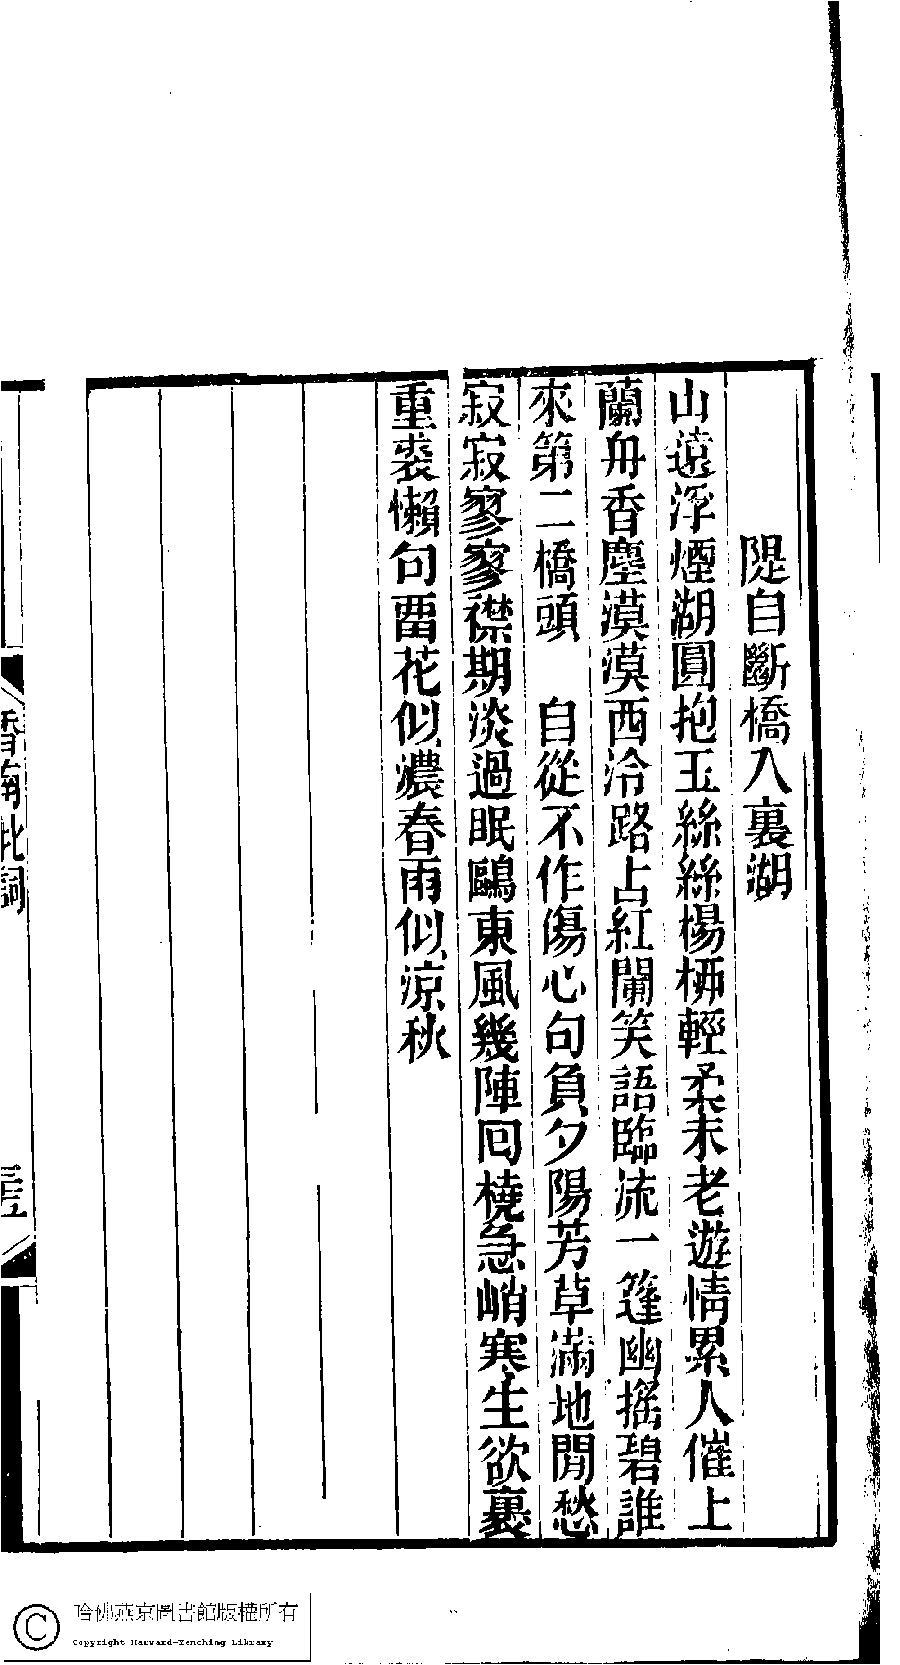 隄自斷橋入裏湖
山遠浮煙湖圓抱玉絲絲楊桺輕柔未老遊情累人催上
蘭舟香塵漠漠西泠路占紅闌笑語臨流一篷幽搖碧誰
來第二橋頭　自從不作傷心句負夕陽芳草滿地閒愁
寂寂寥寥襟期淡過眠鷗東風幾陣回橈急峭寒生欲裹
重裘懶句畱花似濃春雨似凉秋
香南北詞
哈佛燕京圖書館版權所有
Copyright Harvard-Yenching Library